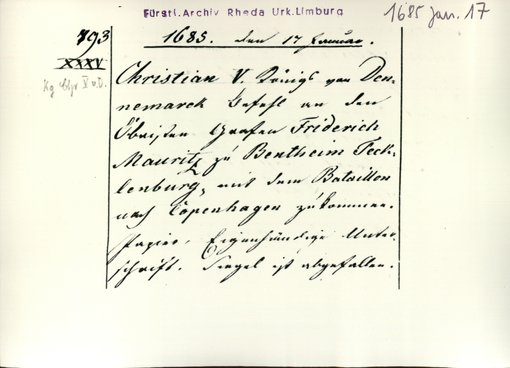 Fürstl. Archiv Rheda Urk. Limburg
1685 Jan. 17
793
XXXV
1685. den 17 Januar.
Christian V. Königs von Den-
nemarck Befehl an den
Obristen Grafen Friderich
Mauritz zu Bentheim Teck-
lenburg, mit dem Bataillon
nach Copenhagen zu kommen.
Papier. Eigenhändige Unter-
schrift. Siegel ist abgefallen.